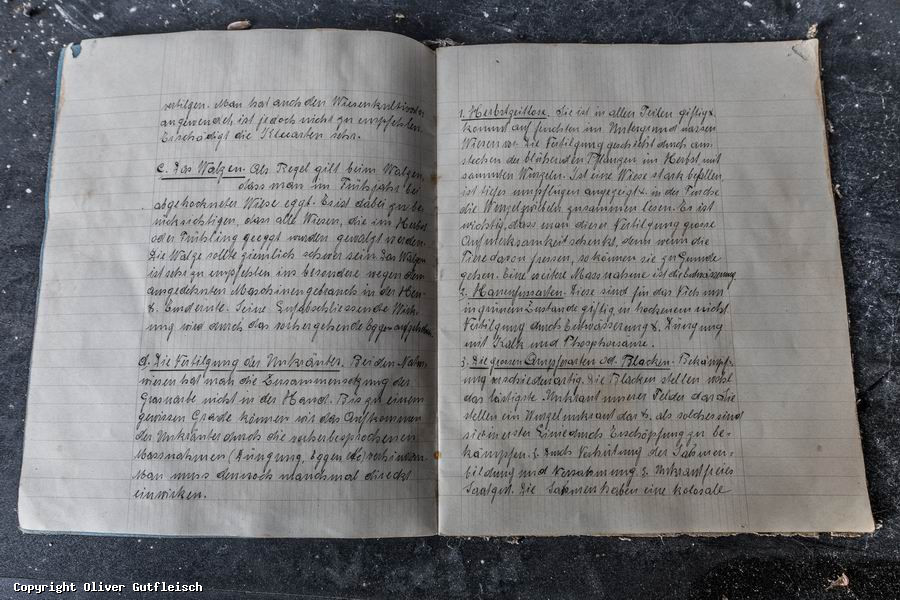 vertilgen. Man hat auch den Wiesenkultivator
angewendet, ist jedoch nicht zu empfehlen.
Er schädigt die Kleearten sehr.
c. Das Walzen. Als Regel gilt beim Walzen,
dass man im Frühjahr bei
abgetrockneter Wiese eggt. Es ist dabei zu be-
rücksichtigen, dass alle Wiesen, die im Herbst
oder Frühling geeggt wurden gewalzt werden.
Die Walze sollte ziemlich schwer sein. Das Walzen
ist sehr zu empfehlen ins besondere wegen dem
ausgedehnten Maschinengebrauch in der Heu-
& Emdernte. Seine Luftabschliessende Wirk-
ung wird durch das vorhergehende Eggen aufgehoben.
d. Die Vertilgung der Unkräuter. Bei den Natur-
wiesen hat man die Zusammensetzung der
Grasnarbe nicht in der Hand. Bis zu einem
gewissen Grade können wir das Aufkommen
der Unkräuter durch die vorherbesprochenen
Massnahmen (Düngung, Eggen etc) verhindern.
Man muss dennoch manchmal direckt
einwirken.
1. Herbstzeitlose. Sie ist in allen Teilen giftig &
kommt auf feuchten im Untergrund nassen
Wiesen vor. Die Vertilgung geschieht durch aus-
stechen der blühenden Pflanzen im Herbst mit
sammt den Wurzeln. Ist eine Wiese stark befallen,
ist tiefes umpflügen angezeigt & in der Furche
die Wurzelzwiebeln zusammen lesen. Es ist
wichtig, dass man dieser Vertilgung grosse
Aufmerksamkeit schenkt, denn wenn die
Tiere davon fressen, so können sie zu Grunde
gehen. Eine weitere Massnahme ist die Entwässerung
2. Hahnenfussarten. Diese sind für das Vieh nur
in grünem Zustande giftig in trockenem nicht
Vertilgung durch Entwässerung & Düngung
mit Kalk und Phosphorsäure.
3. Die grossen Ampferarten od. Blacken. Bekämpf-
ung verschiedenartig. Die Blacken stellen wohl
das lästigste Unkraut unserer Felder dar. Sie
stellen ein Wurzelunkraut dar & als solches sind
sie in erster Linie durch Erschöpfung zu be-
kämpfen. 2. Durch Verhütung der Sahmen-
bildung und Versahmung. 3. Unkrautfreies
Saatgut. Die Sahmen haben eine kolosale
Copyright Oliver Gutfleisch